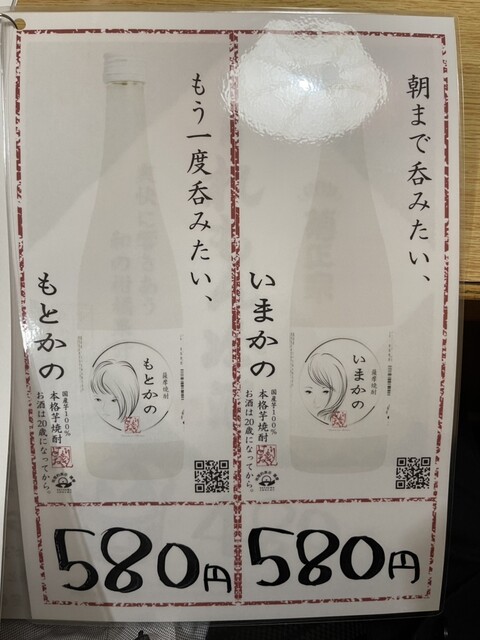 朝まで呑みたい、
いまかの
国産芋100%
本格芋焼酎
お酒は20歳になってから。
薩摩焼酎
いまかの
580円
もう一度呑みたい、
もとかの
国産芋100%
本格芋焼酎
お酒は20歳になってから。
薩摩焼酎
もとかの
580円